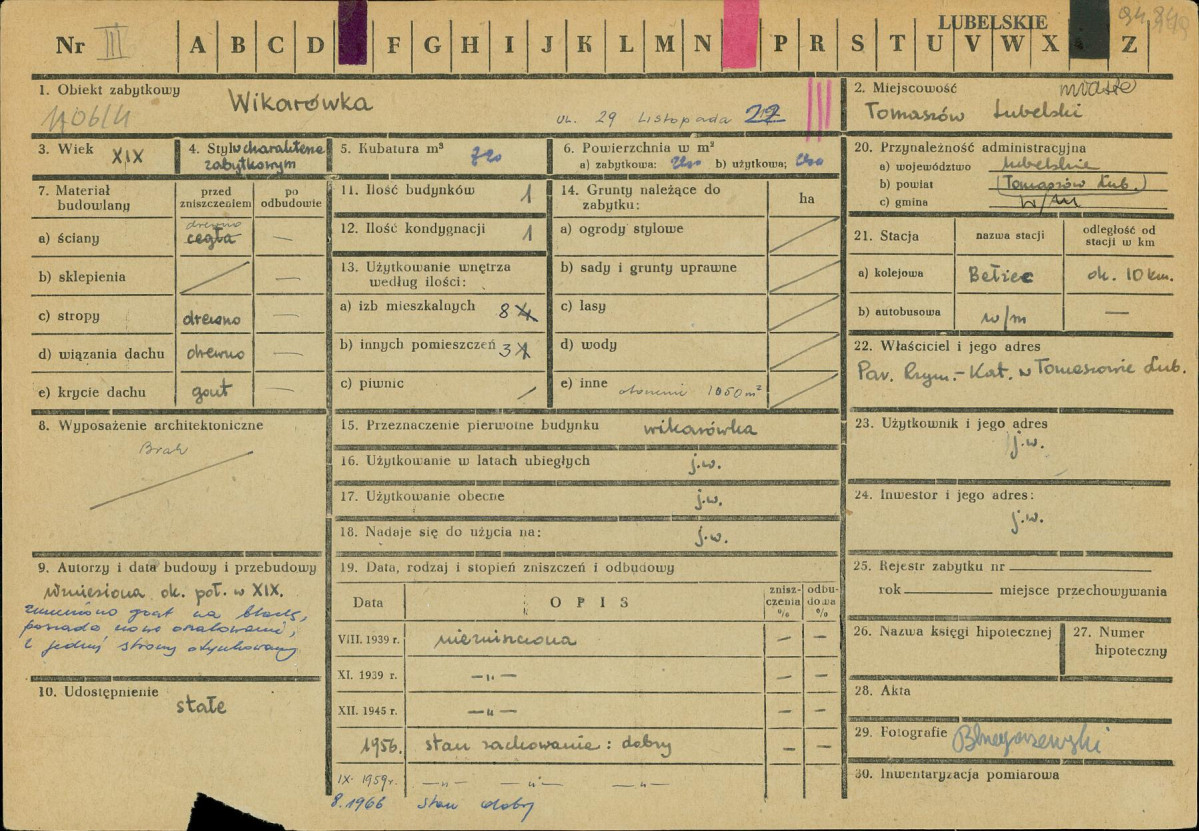 LUBELSKIE
Nr III A B C D F G H I J K L M N P R S T U V W X Z
1. Obiekt zabytkowy
Wikarówka
ul. 29 Listopada
2. Miejscowość miasto
Tomaszów Lubelski
3. Wiek XIX
4. Styl o charakterze
zabytkowym
5. Kubatura m³
6. Powierzchnia w m²
a) zabytkowa: b) użytkowa:
20. Przynależność administracyjna
a) województwo lubelskie
b) powiat (Tomaszów Lub.)
c) gmina w/m
7. Materiał
budowlany
przed
zniszczeniem
po
odbudowie
a) ściany drewno cegła —
b) sklepienia —
c) stropy drewno —
d) wiązania dachu drewno —
e) krycie dachu gont —
11. Ilość budynków 1
12. Ilość kondygnacji 1
13. Użytkowanie wnętrza
według ilości:
a) izb mieszkalnych 8
b) innych pomieszczeń 3
c) piwnic
14. Grunty należące do
zabytku:
ha
a) ogrody stylowe
b) sady i grunty uprawne
c) lasy
d) wody
e) inne otoczenie 1050 m²
21. Stacja
nazwa stacji
odległość od
stacji w km
a) kolejowa Bełżec ok. 10 km.
b) autobusowa w/m —
22. Właściciel i jego adres
Par. Rzym.-Kat. w Tomaszowie Lub.
8. Wyposażenie architektoniczne
Brak
15. Przeznaczenie pierwotne budynku wikarówka
16. Użytkowanie w latach ubiegłych j.w.
17. Użytkowanie obecne j.w.
18. Nadaje się do użycia na: j.w.
23. Użytkownik i jego adres
j.w.
24. Inwestor i jego adres:
j.w.
9. Autorzy i data budowy i przebudowy
Wzniesiona ok. poł. w XIX.
zmieniono gont na blachę,
posiada nowe oszalowanie,
z jednej strony otynkowany
10. Udostępnienie
stałe
19. Data, rodzaj i stopień zniszczeń i odbudowy
Data
OPIS
znisz-
czenia
%
odbu-
dowa
%
VIII. 1939 r. niezniszczona — —
XI. 1939 r. —"— — —
XII. 1945 r. —"— — —
1956. stan zachowania: dobry — —
IX-1959r. —"— —"— —"—
8.1966 stan dobry
25. Rejestr zabytku nr
rok miejsce przechowywania
26. Nazwa księgi hipotecznej
27. Numer
hipoteczny
28. Akta
29. Fotografie
30. Inwentaryzacja pomiarowa